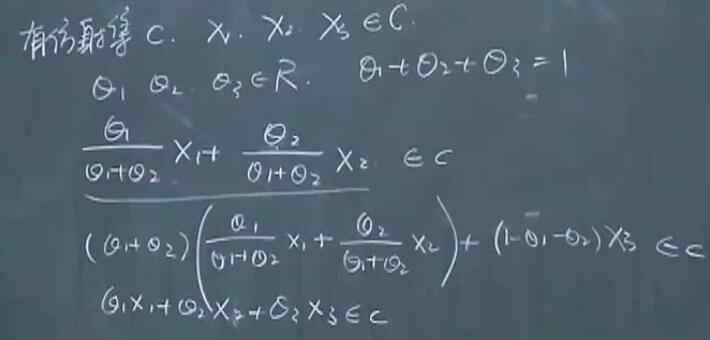 有仿射集 C. X₁. X₂. X₃ ∈ C.
θ₁ θ₂. θ₃ ∈ R. θ₁+θ₂+θ₃ = 1
θ₁/(θ₁+θ₂) X₁ + θ₂/(θ₁+θ₂) X₂. ∈ C
(θ₁+θ₂)(θ₁/(θ₁+θ₂) X₁ + θ₂/(θ₁+θ₂) X₂) + (1-θ₁-θ₂) X₃ ∈ C
θ₁X₁+θ₂X₂+θ₃X₃ ∈ C